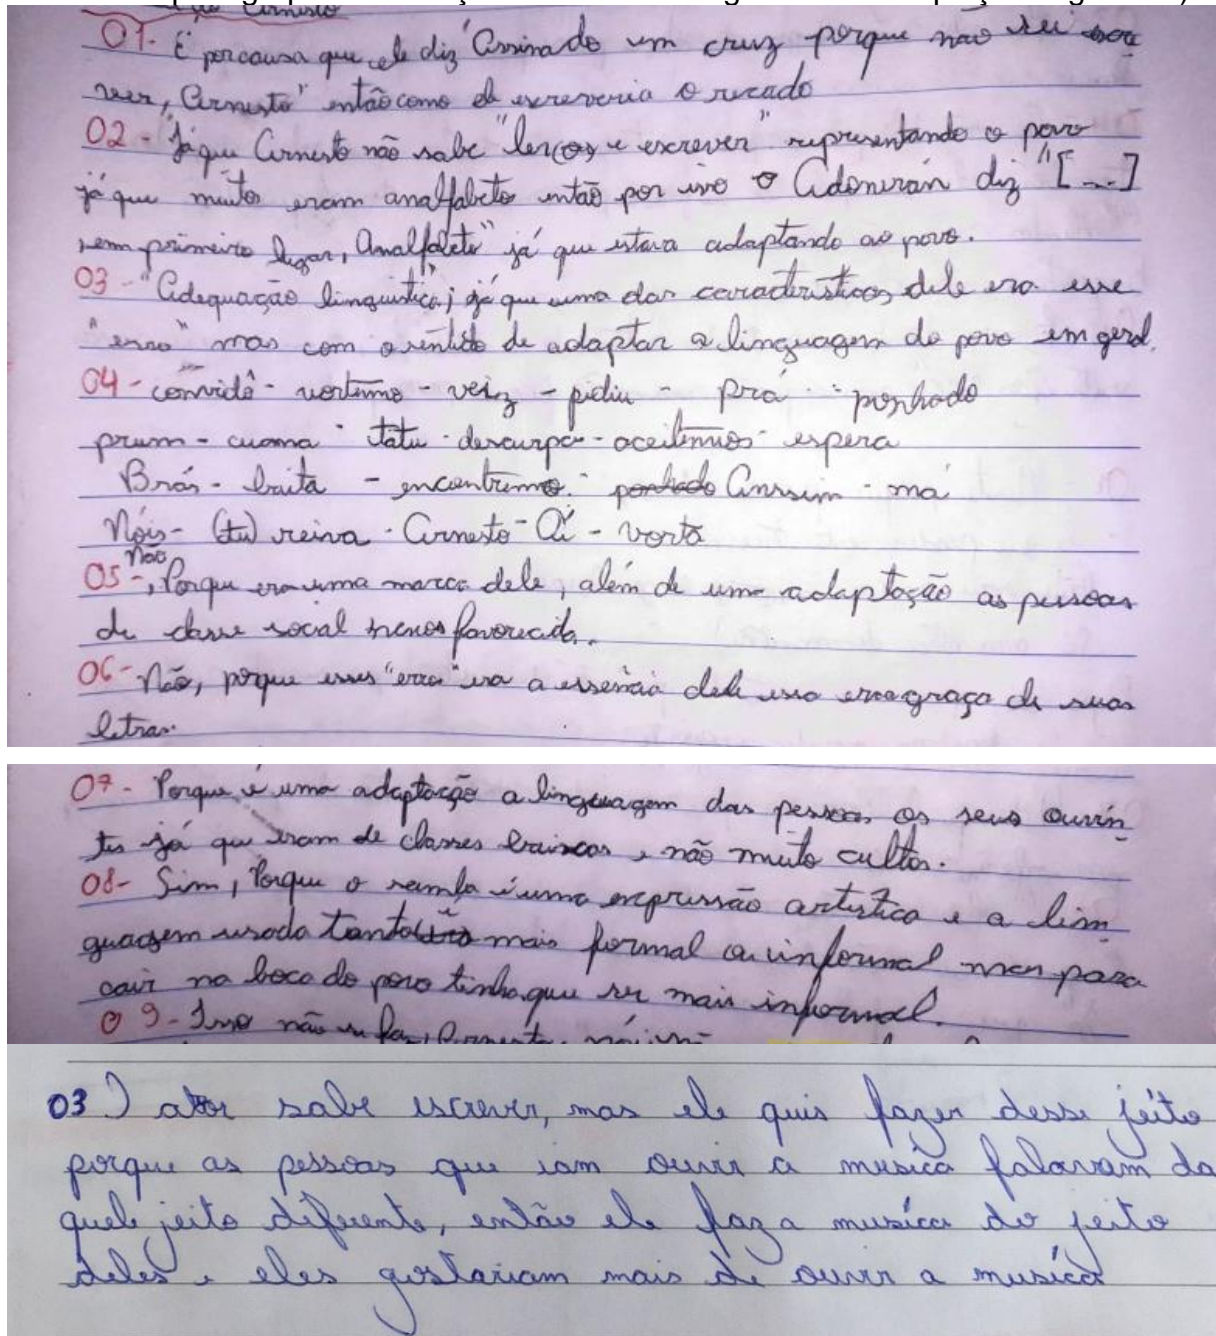 01- É porcausa que ele diz "Assinado um cruz porque não sei
ver, Arnesto" então como ele escreveria o recado
02- "Já que Arnesto não sabe "ler(as) e escrever" representando o povo
já que muitos eram analfabetos então por isso o Adoniran diz "[...]
sem primeiro lugar, Analfabeto" já que estava adaptando ao povo.
03- "Adequação linguística; já que uma das características dele era esse
"erro" mas com o sentido de adaptar a linguagem do povo em geral.
04- convidô - vortemo - veiz - pidiu - pra - ponhado
prum - cuoma - tatu - descurpa - aceitemos - espera
Brás - baita - encontremo - ponhado Anssim - má
Nóis - (tu) reiva - Arnesto - Ai - vorta
Não
05-, Porque era uma marca dele, além de uma adaptação as pessoas
de classe social menos favorecida.
06- Não, porque esses "erros" era a essência dele isso era graça de suas
letras.
07- Porque é uma adaptação a linguagem das pessoas os seus ouvin
tes já que eram de classes baixas e não muito cultos.
08- Sim, Porque o samba é uma expressão artística e a lin
guagem usada tanto mais formal ou informal mas para
cair na boca do povo tinha que ser mais informal.
09- Isso não se faz, Arnesto, nóis
03) ator sabe escrever, mas ele quis fazer desse jeito
porque as pessoas que iam ouvir a musica falavam da
quele jeito diferente, então ele faz a musica do jeito
deles e eles gostariam mais de ouvir a musica